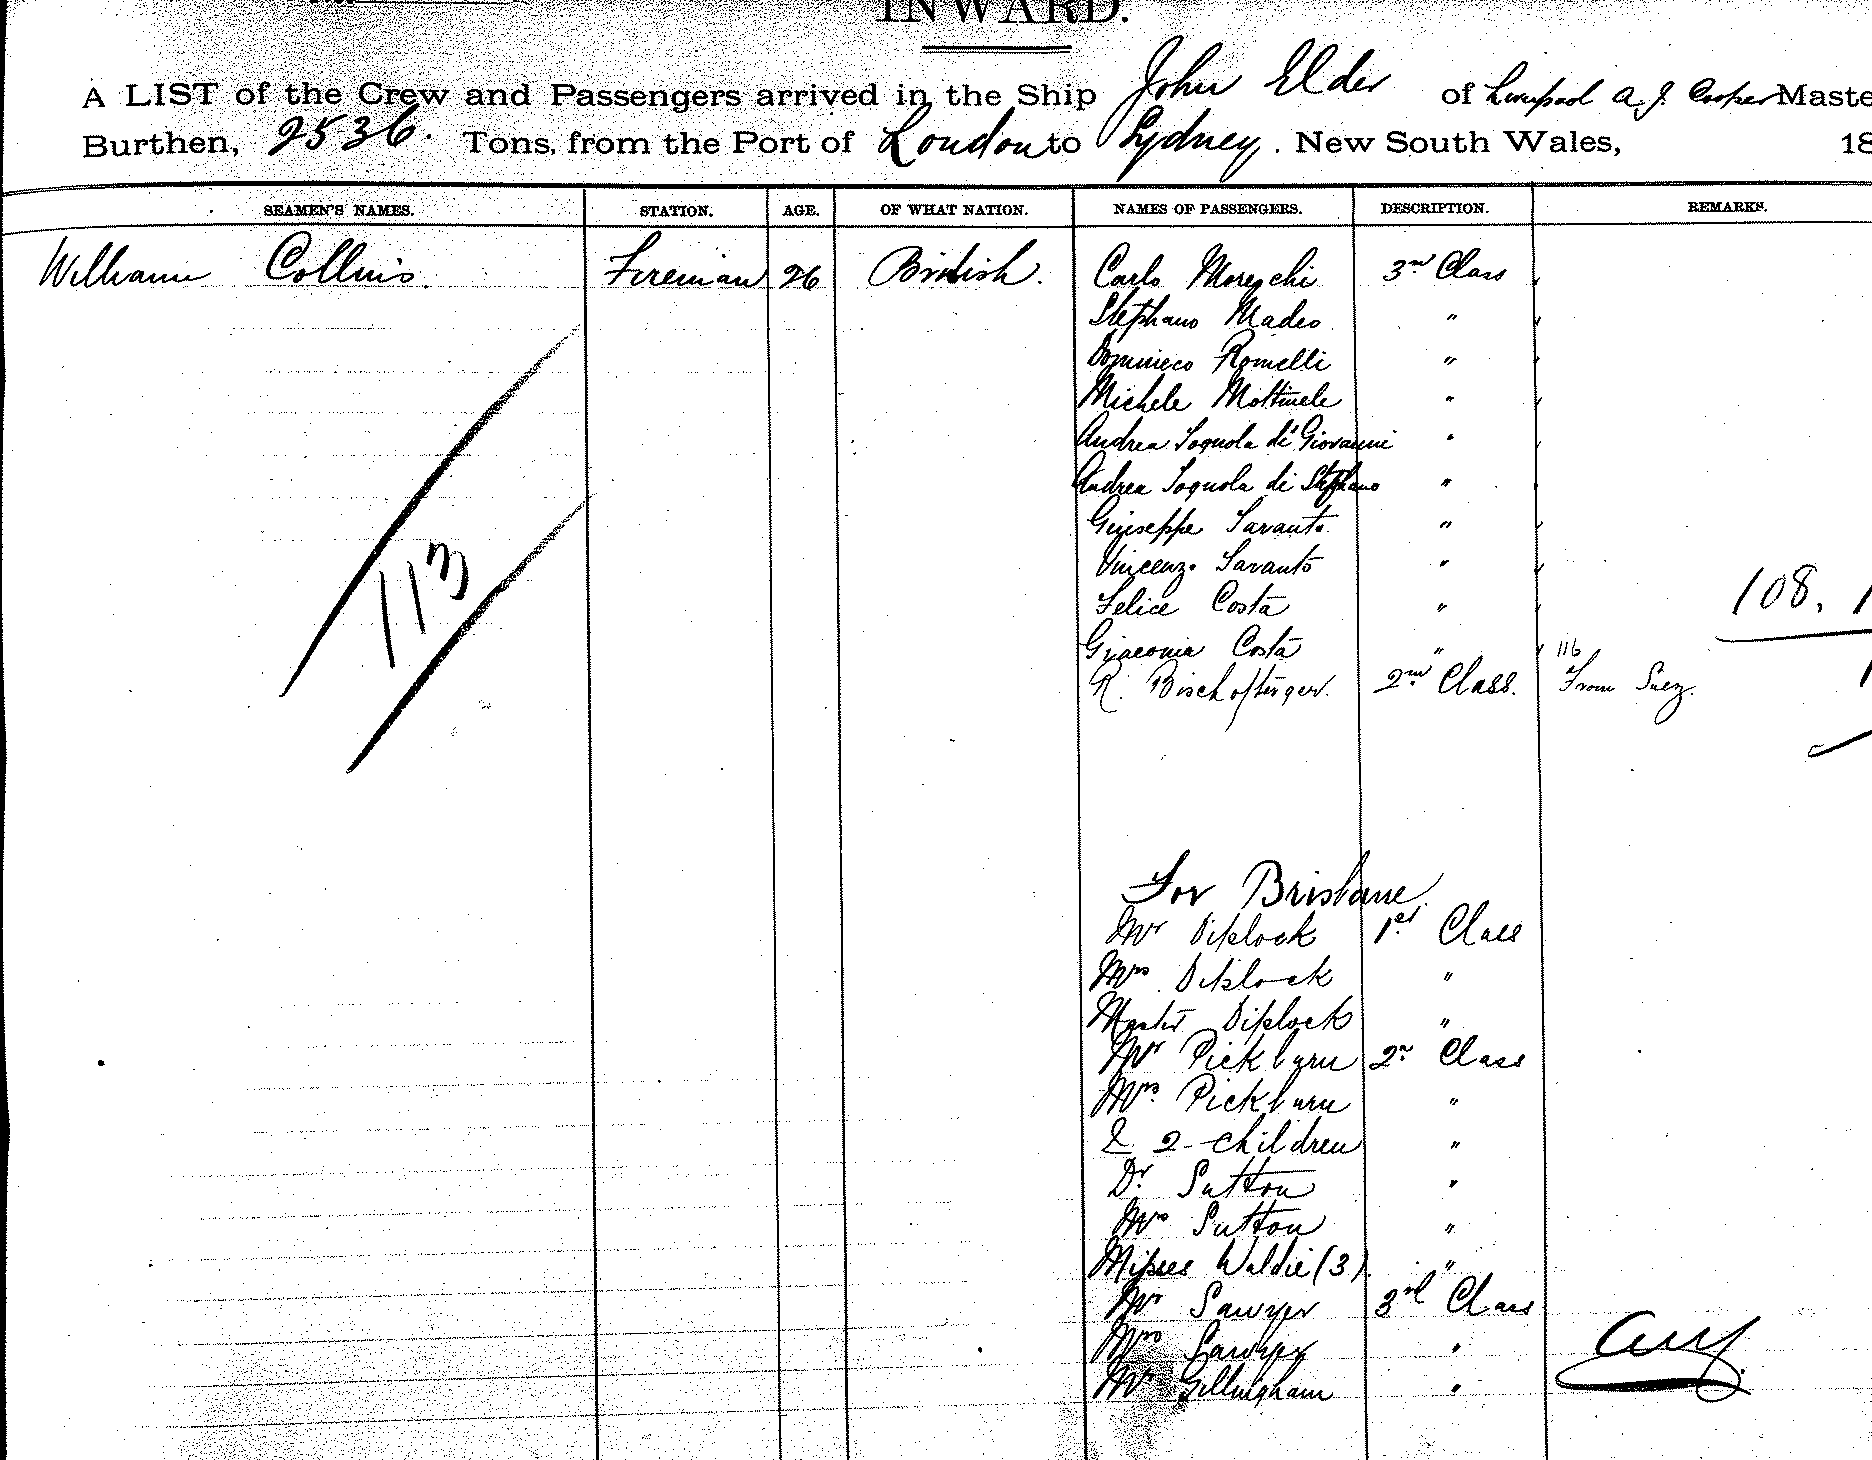 INWARD.
A LIST of the Crew and Passengers arrived in the Ship John Elder of Liverpool A. J. Cooper Maste
Burthen, 2536. Tons, from the Port of London to Sydney. New South Wales, 18
SEAMEN'S NAMES. STATION. AGE. OF WHAT NATION. NAMES OF PASSENGERS. DESCRIPTION. REMARKS.
William Collins. Fireman 26 British. Carlo 3rd Class
Stephano Madeo "
Dominico Romelli "
Michele "
Andrea Tognola di Giovanni "
Andrea Tognola di Stephano "
Giuseppe "
113
Vincenzo "
Felice Costa " 108.
Costa " 116
R. 2nd Class. From Suez.
For Brisbane
Mr Diplock 1st Class
Mrs Diplock "
Master Diplock "
Mr Pickburn 2n Class
Mrs Pickburn "
& 2 children "
Dr Sutton "
Mrs Sutton "
Misses Waldie (3) "
Mr Sawyer 3rd Class
Mrs Sawyer "
Mr Gillingham "